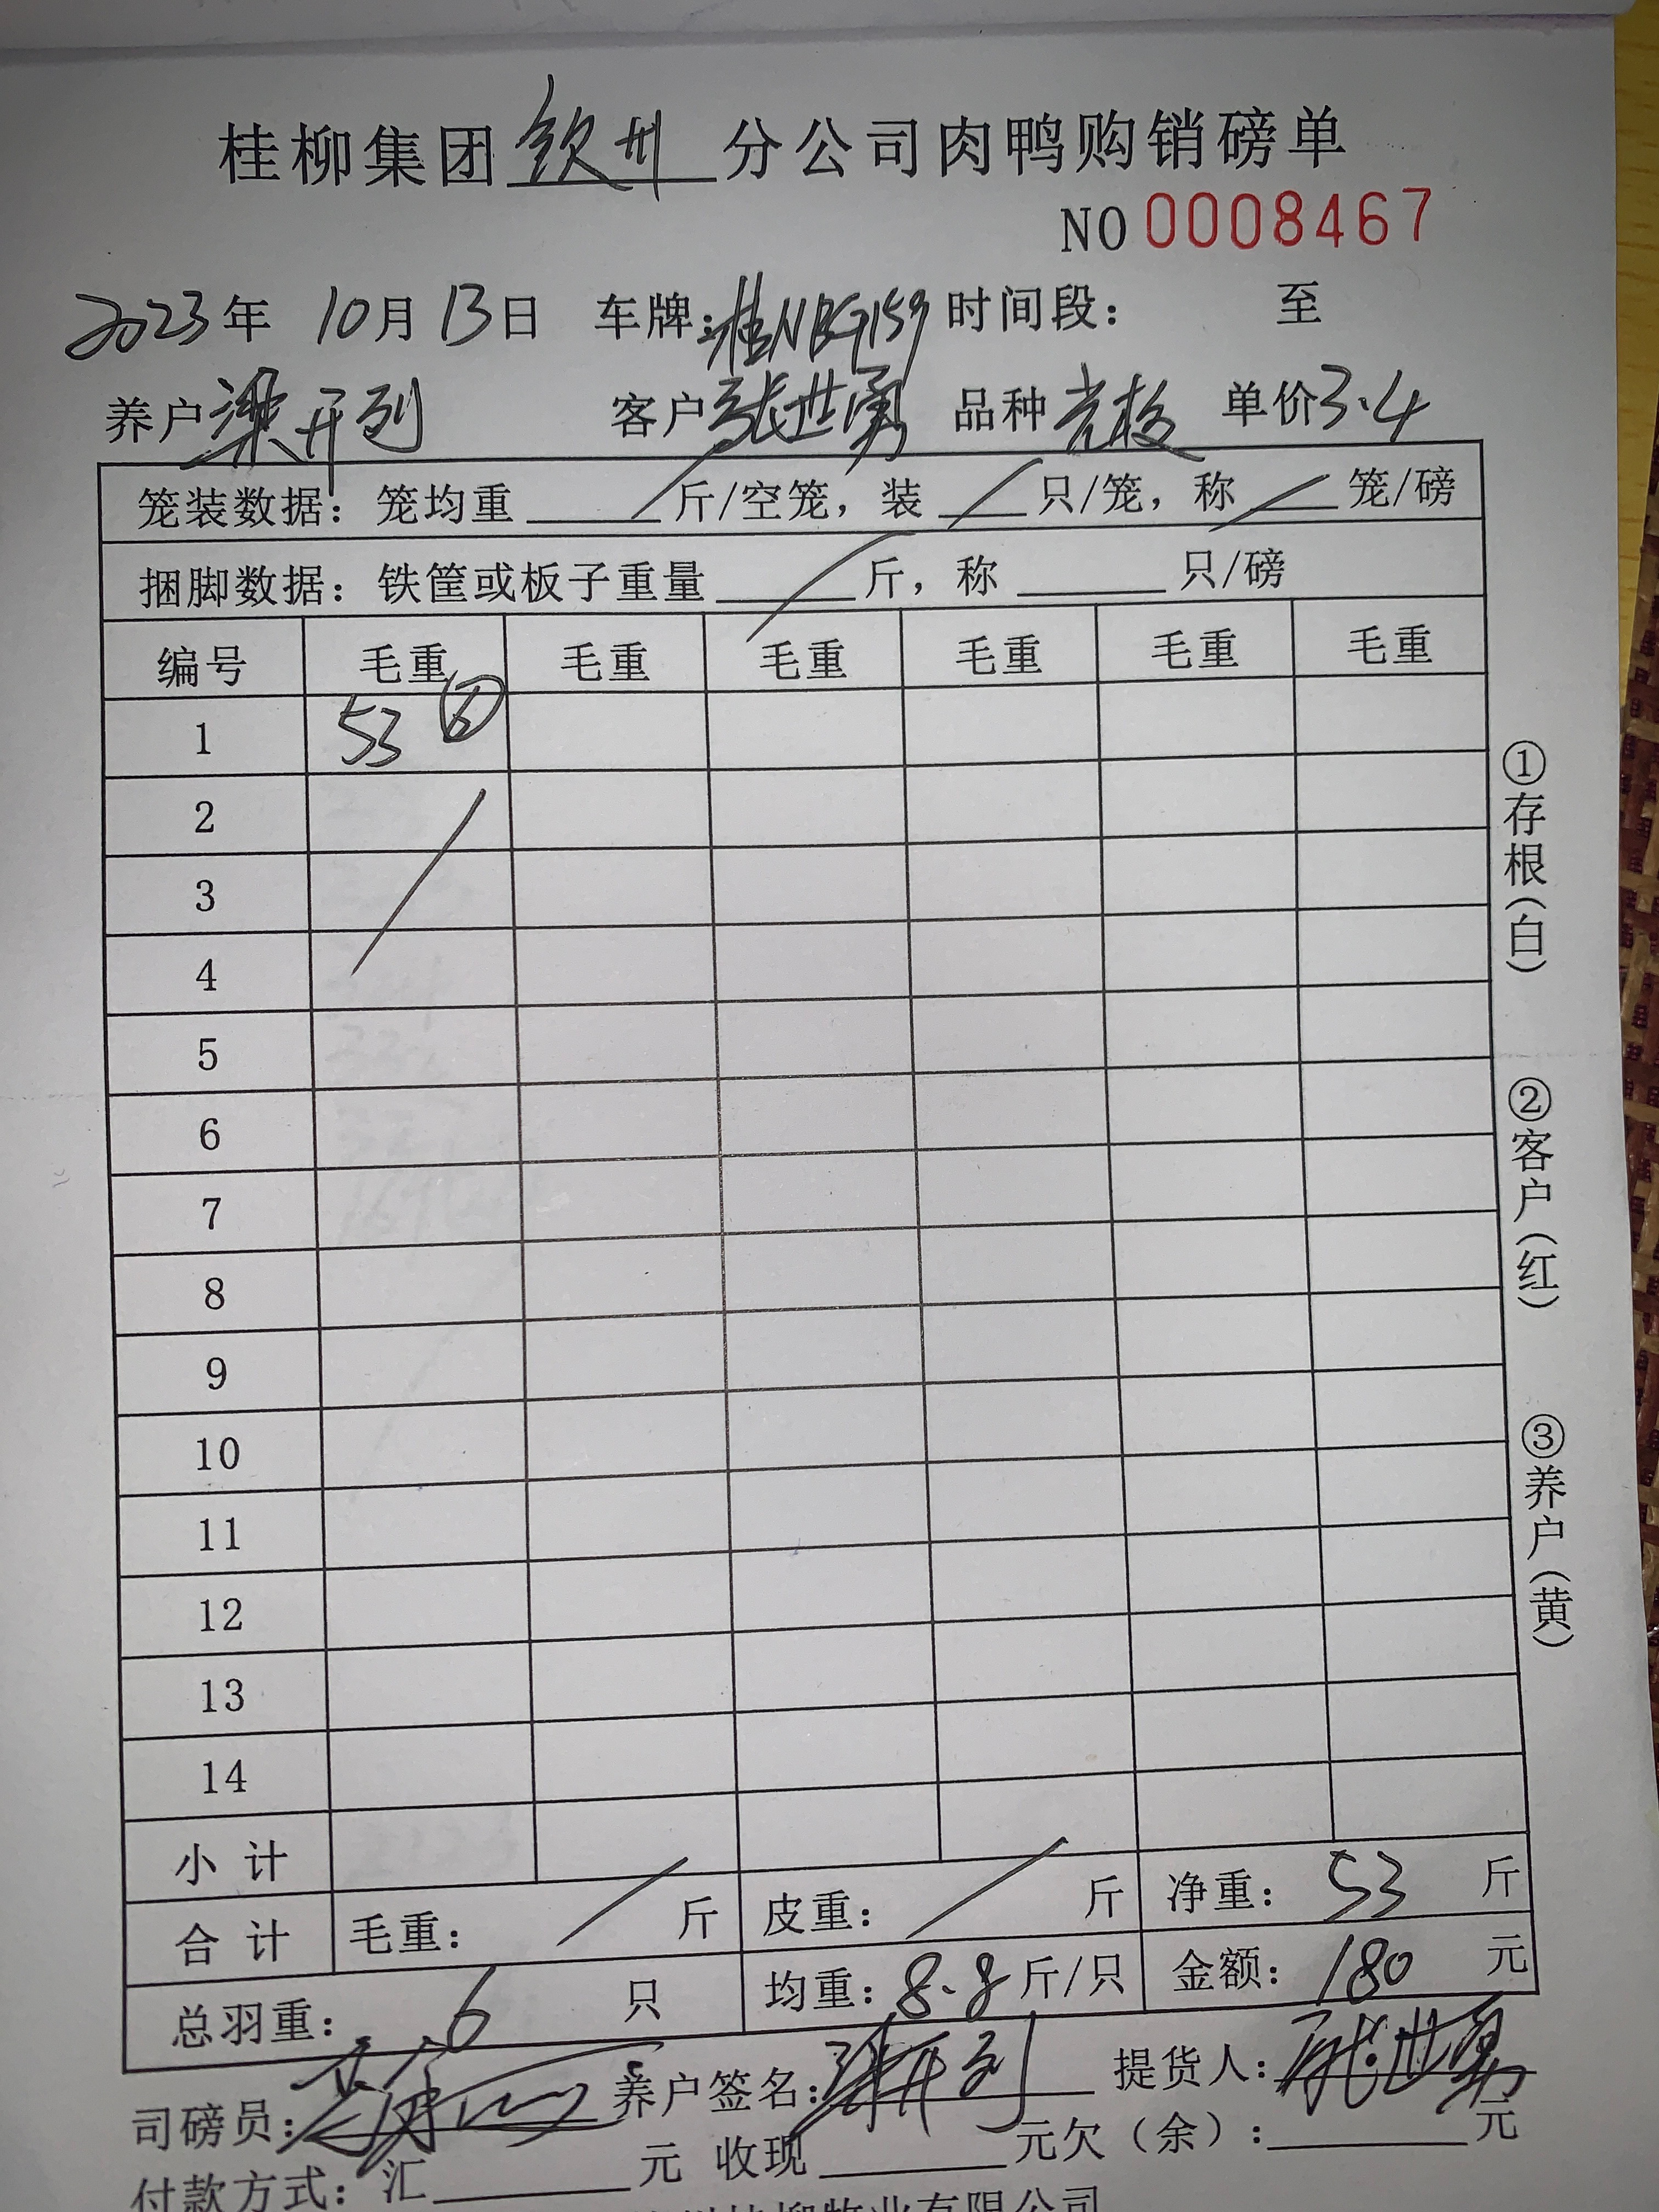 桂柳集团 钦州 分公司肉鸭购销磅单
NO 0008467
2023年 10月 13日 车牌：桂NBG159 时间段： 至
养户 梁开列 客户 张世勇 品种 单价 3.4
笼装数据：笼均重 / 斤/空笼，装 / 只/笼，称 / 笼/磅
捆脚数据：铁筐或板子重量 / 斤，称 只/磅
编号 毛重 毛重 毛重 毛重 毛重 毛重
1 53 ⑥
2
3
4
5
6
7
8
9
10
11
12
13
14
小计
合计 毛重： / 斤 皮重： / 斤 净重： 53 斤
总羽重： 6 只 均重：8.8 斤/只 金额： 180 元
司磅员： 养户签名：梁开列 提货人：张世勇
付款方式：汇 元 收现 元欠（余）： 元
柳牧业有限公司
①存根（白）
②客户（红）
③养户（黄）